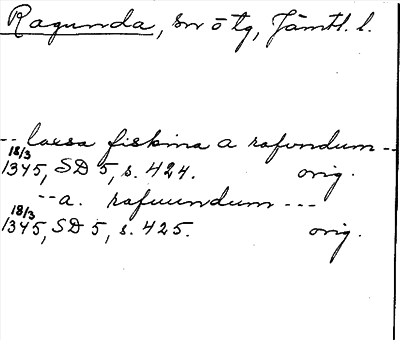 Ragunda, sn ō tg, Jämtl. l.
-- laxsa fiskina a rafundum --
18/3
1345, SD 5, s. 424. orig.
-- a. rafuundum ---
18/3
1345, SD 5, s. 425. orig.